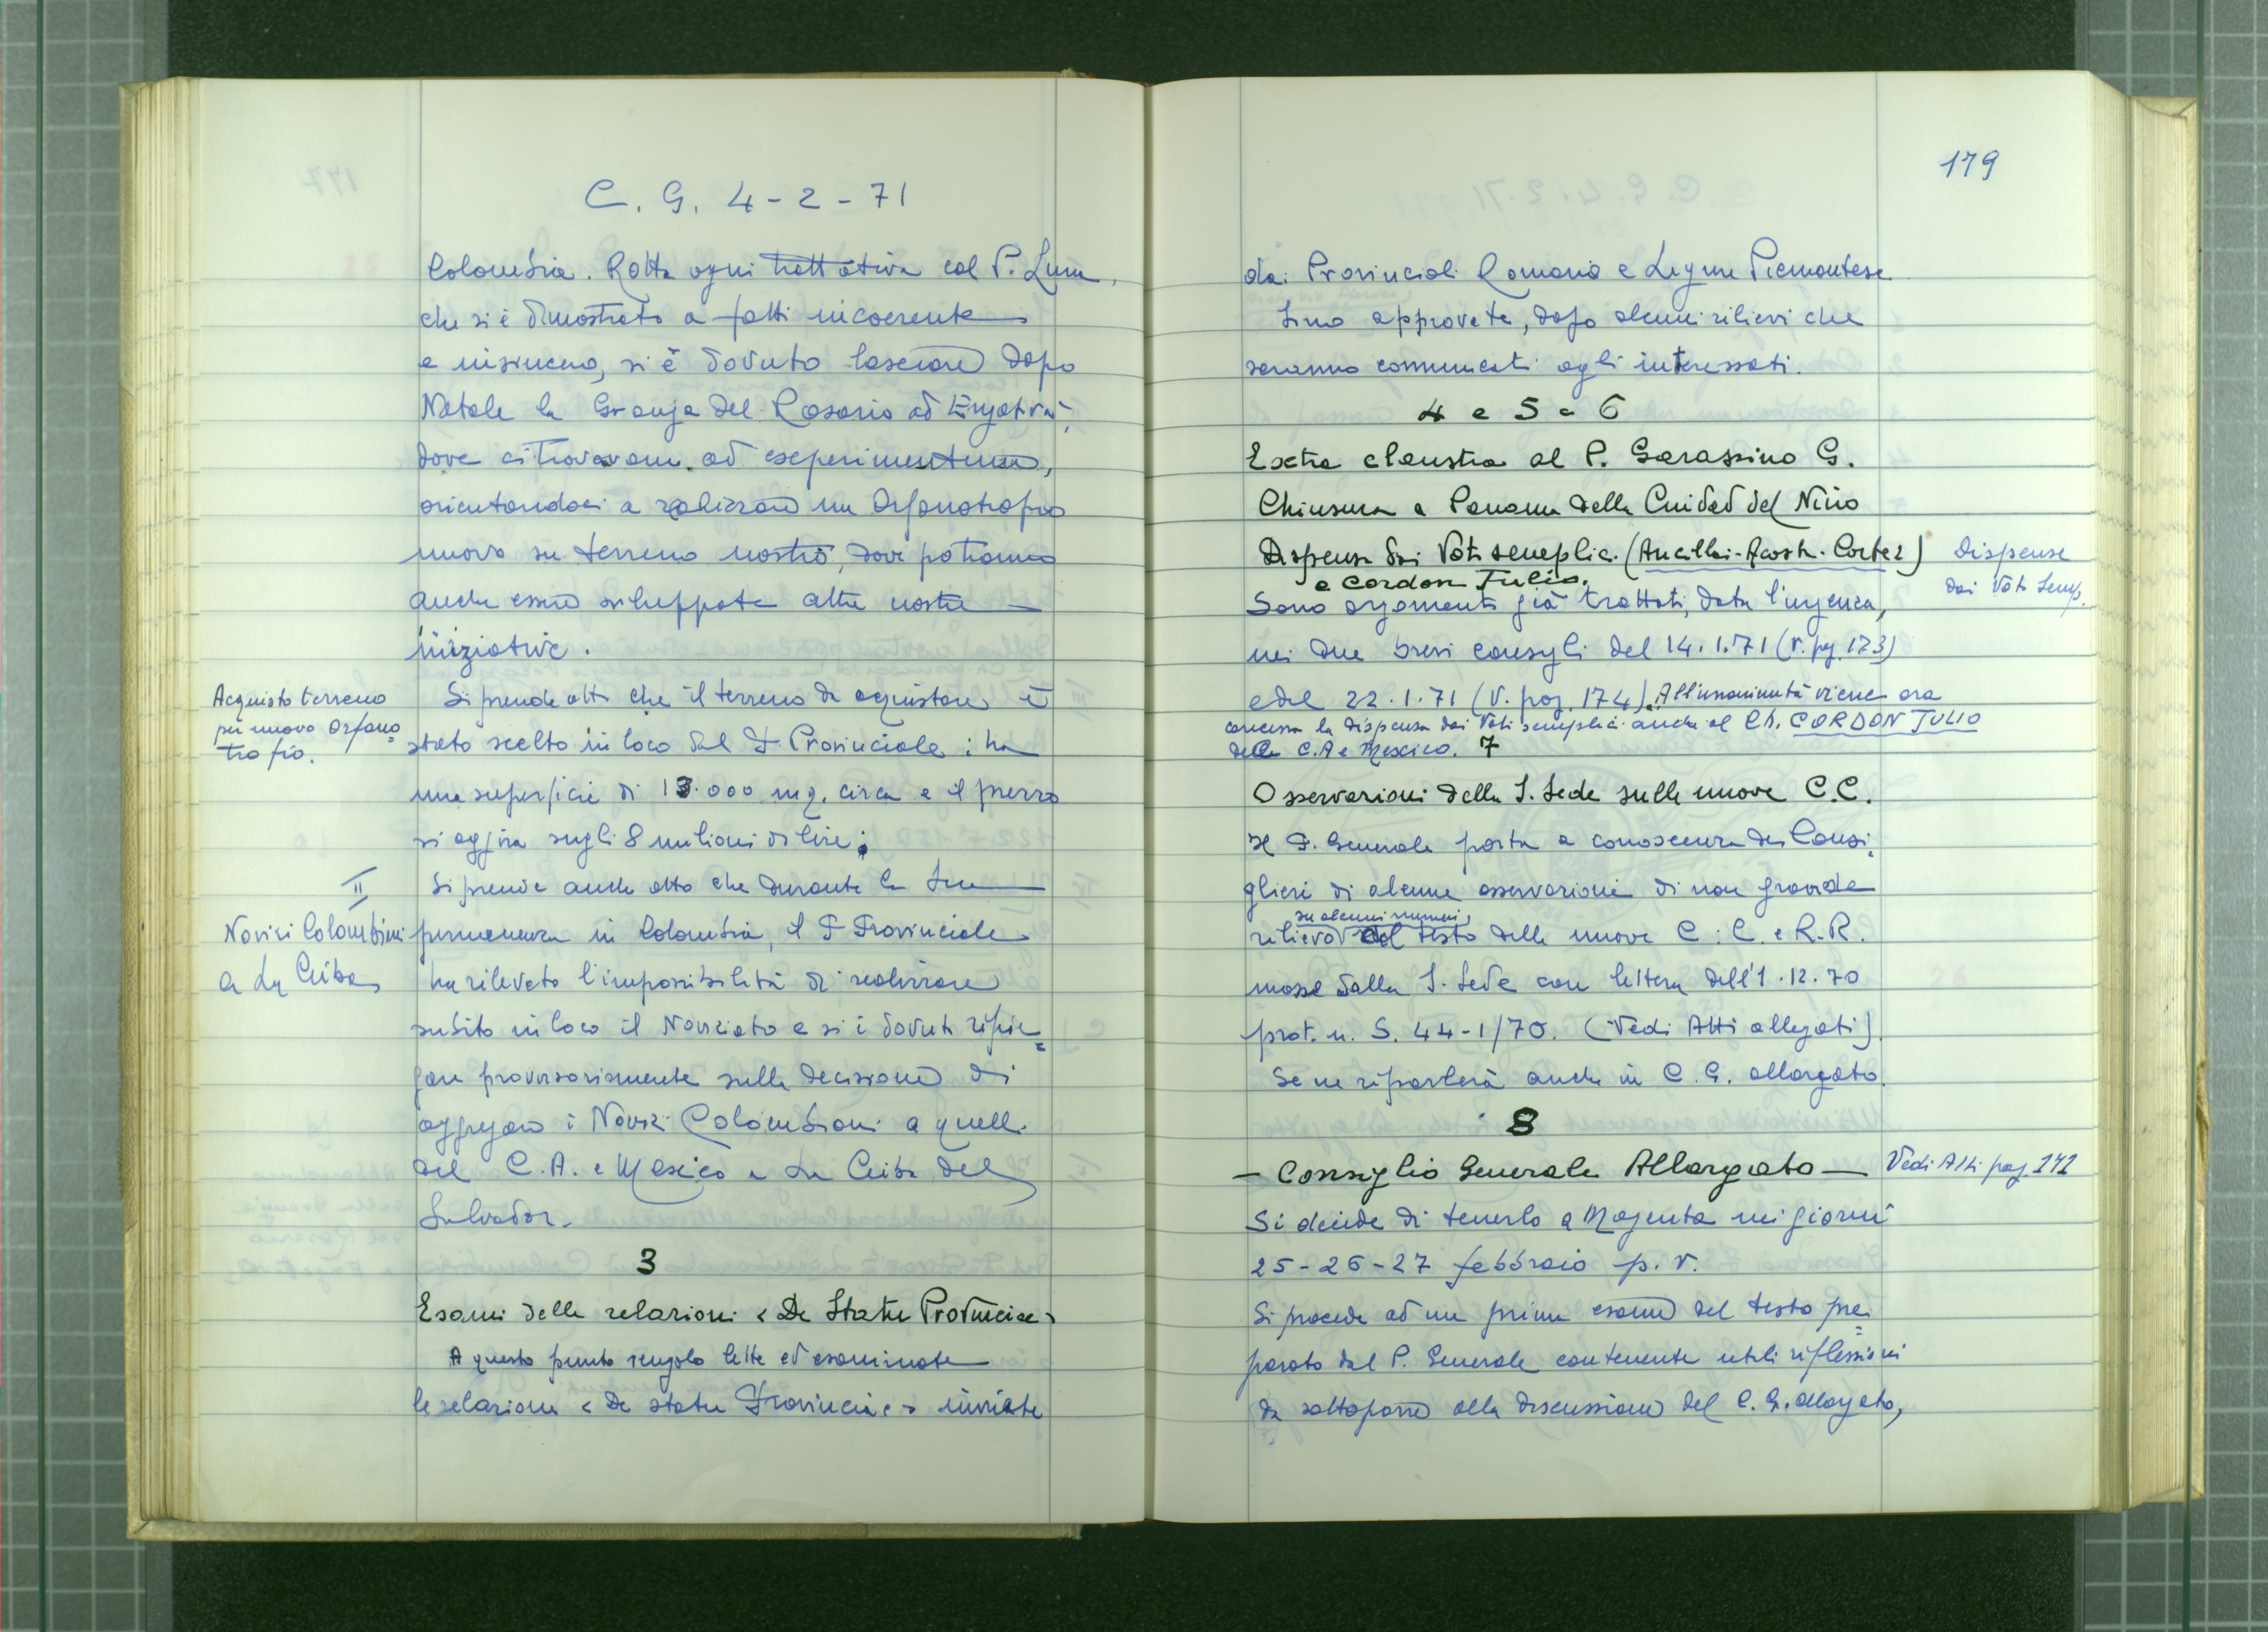 C. G. 4-2-71
Colombia. Rotta ogni trattativa col P. Luna,
che si è dimostrato a fatti incoerente
e insincero, si è dovuto lasciare dopo
Natale la Granja del Rosario ad Engativà,
dove ci trovavamo ad esperimentum,
orientandoci a realizzare un Orfanotrofio
nuovo su terreno nostro, dove potranno
anche essere sviluppate altre nostre
iniziative.
Acquisto terreno
per nuovo Orfano=
trofio.
Si prende atto che il terreno da acquistare è
stato scelto in loco dal P. Provinciale: ha
una superficie di 13.000 mq. circa e il prezzo
si aggira sugli 8 milioni di lire.
II
Novizi Colombiani
a La Ceiba
Si prende anche atto che durante la sua
permanenza in Colombia, il P. Provinciale
ha rilevato l'impossibilità di realizzare
subito in loco il Noviziato e si è dovuto ripie=
gare provvisoriamente sulla decisione di
aggregare i Novizi Colombiani a quelli
del C.A. e Mexico a La Ceiba del
Salvador.
3
Esami delle relazioni «De Statu Provinciae»
A questo punto vengono lette ed esaminate
le relazioni «De statu Provinciae» inviate
179
dai Provinciali Romano e Ligure Piemontese.
Sono approvate, dopo alcuni rilievi che
saranno comunicati agli interessati.
4 e 5 e 6
Extra claustra al P. Garassino G.
Chiusura a Panama della Cuidad del Niño
Dispensa dai Voti semplici (Ancillai-Acosta-Cortez)
e Cordon Tulio.
Dispense
dai Voti Semp.
Sono argomenti già trattati, data l'urgenza,
nei due brevi consigli del 14.1.71 (V. pag. 173)
e del 22.1.71 (V. pag. 174). All'unanimità viene ora
concessa la dispensa dai Voti semplici anche al Ch. CORDON TULIO
della C.A e Mexico. 7
Osservazioni della S. Sede sulle nuove C.C.
Il P. Generale porta a conoscenza dei Consi=
glieri di alcune osservazioni di non grande
su alcuni numeri,
rilievo del testo delle nuove C.C. e R.R.
mosse dalla S. Sede con lettera dell'1.12.70
prot. n. S. 44-1/70. (Vedi Atti allegati).
Se ne riparlerà anche in C.G. allargato.
8
- Consiglio Generale Allargato -
Vedi Atti pag. 171
Si decide di tenerlo a Magenta nei giorni
25-26-27 febbraio p.v.
Si procede ad un primo esame del testo pre=
parato dal P. Generale contenente utili riflessioni
da sottoporre alla discussione del C.G. allargato,